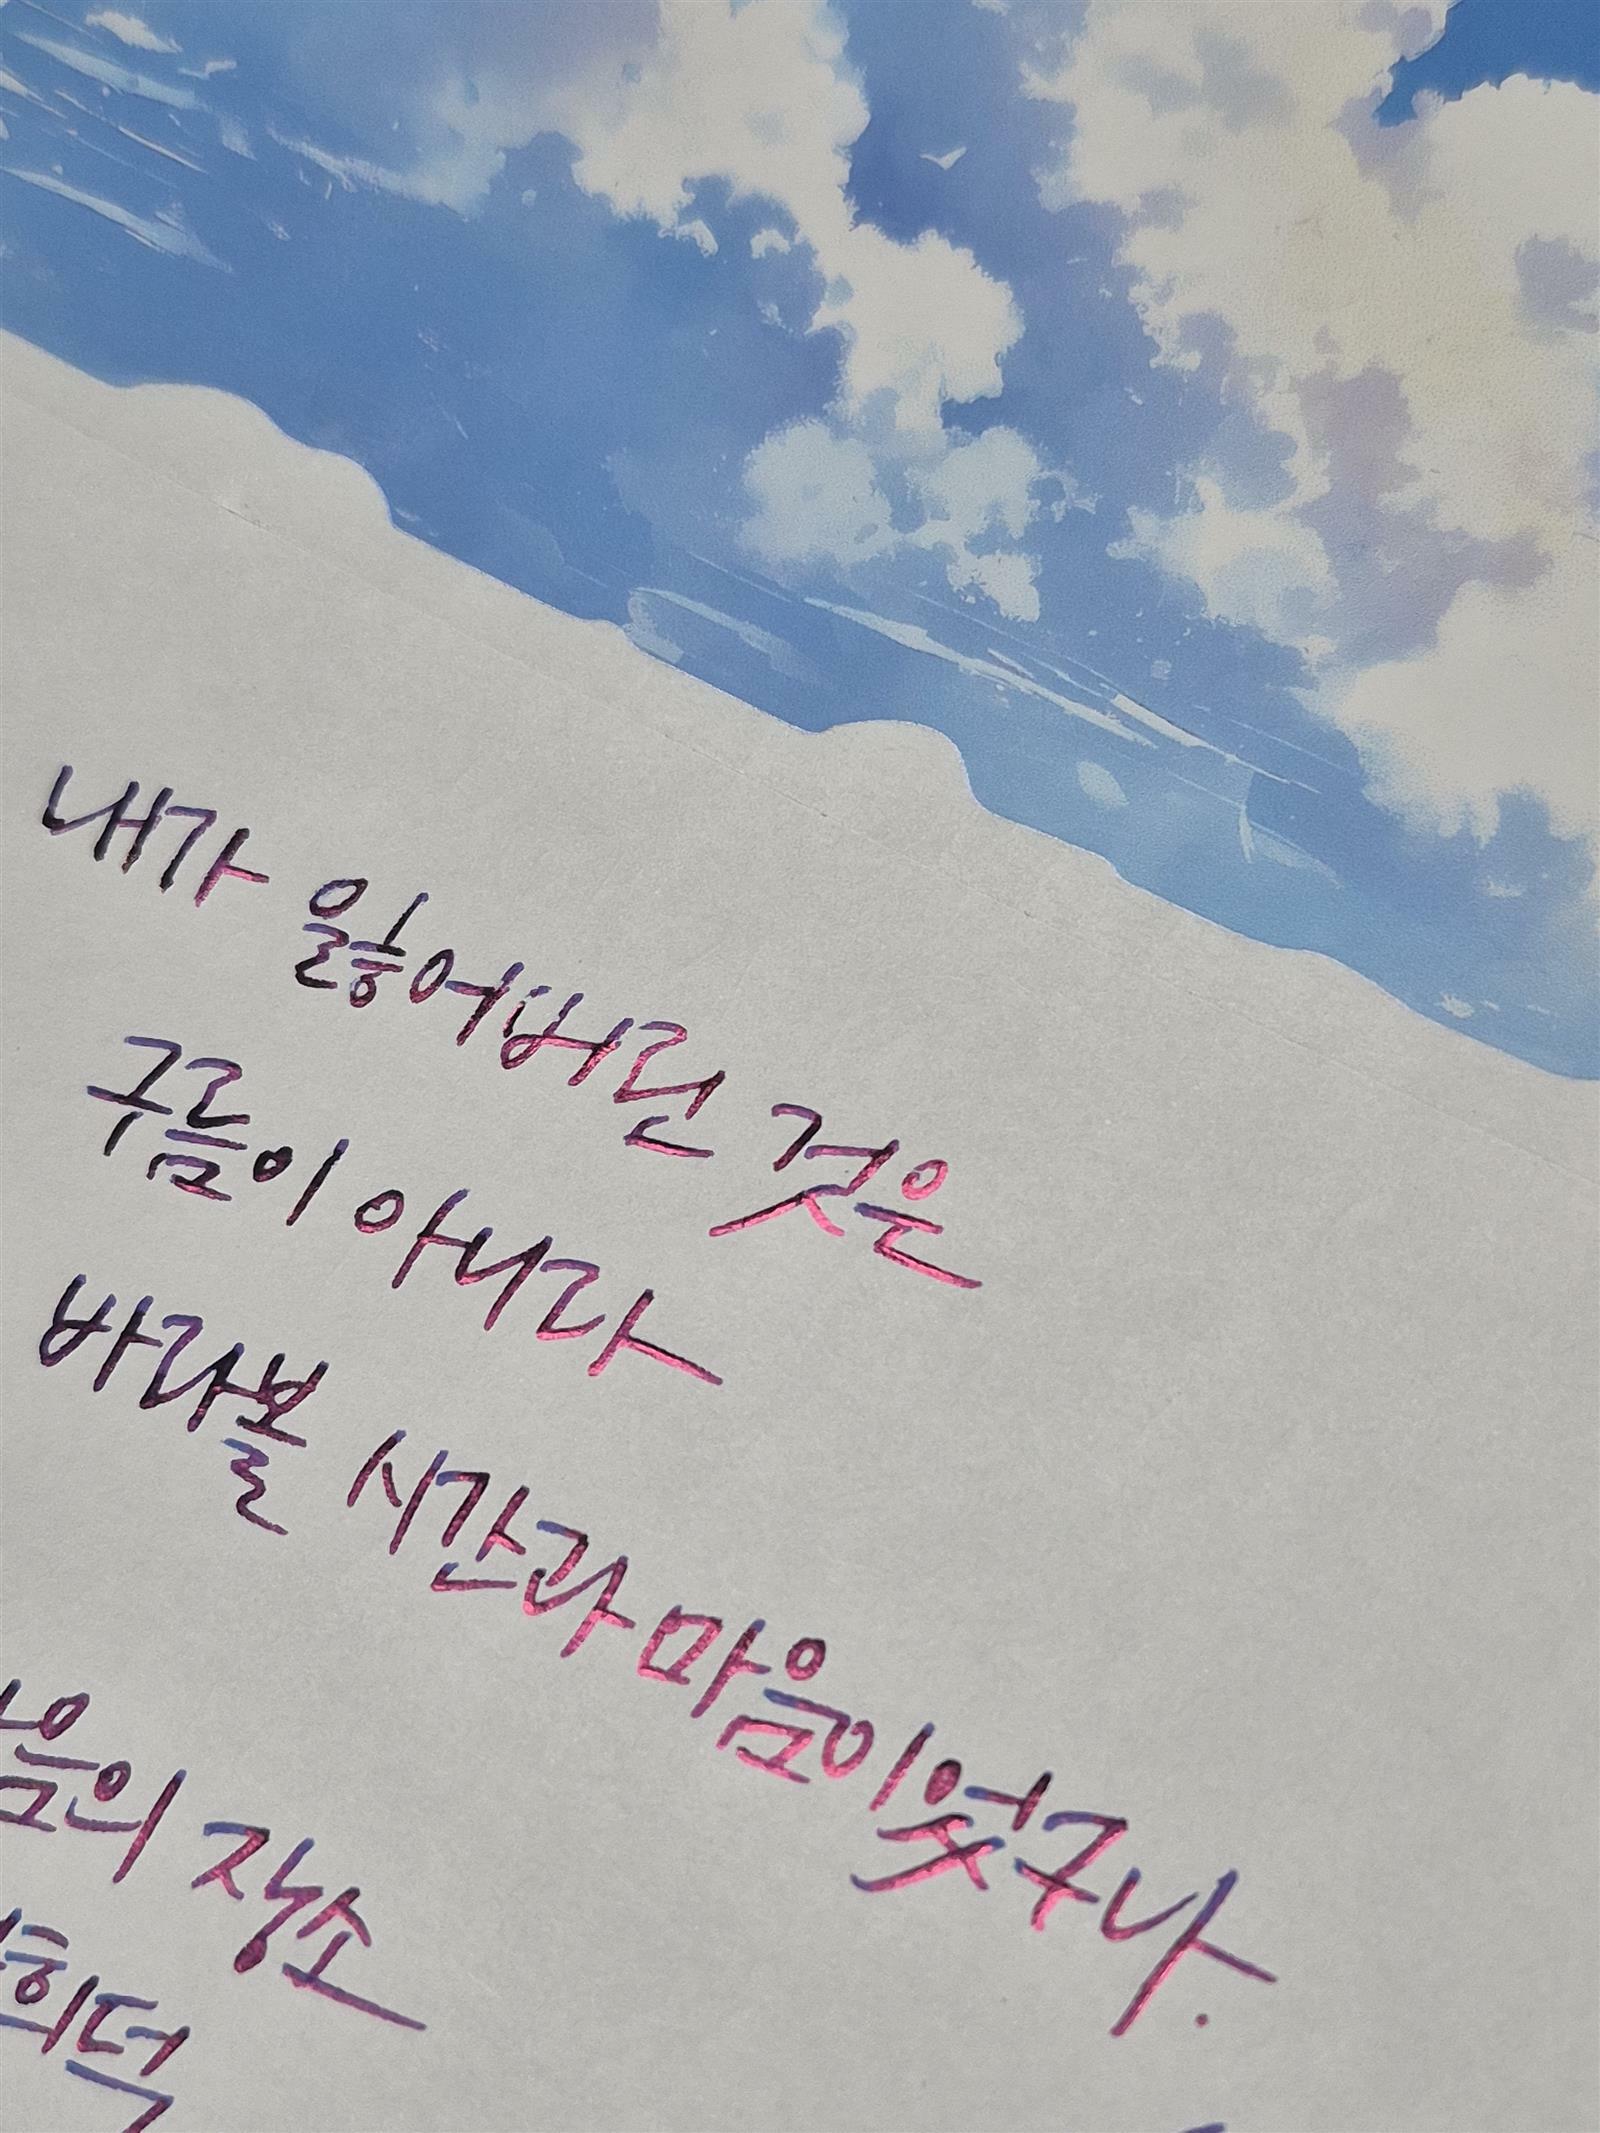 내가 잃어버린 것은
구름이 아니라
바라볼 시간과 마음이었구나.
음의 장소
희덕